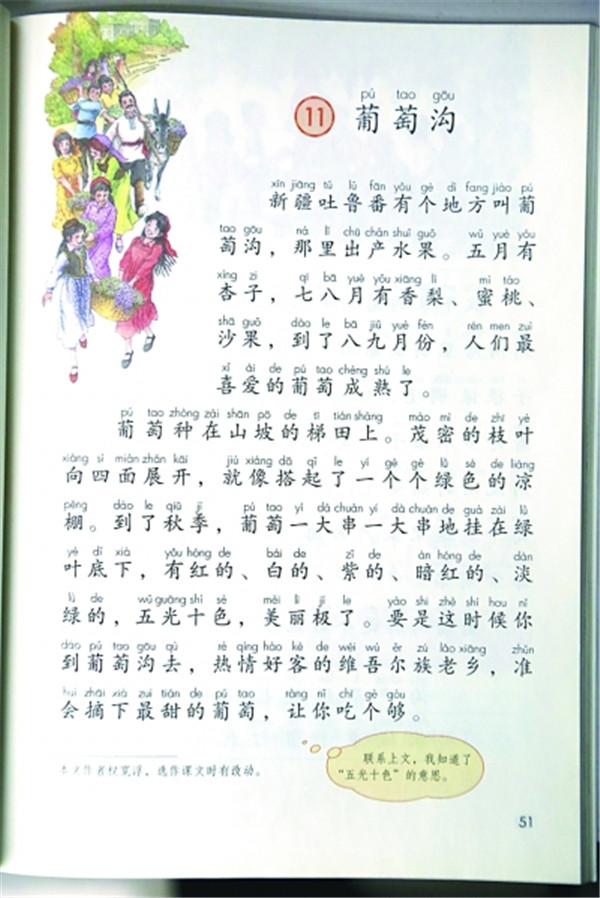 pú tao gōu
11 葡萄沟
xīn jiāng tǔ lǔ fān yǒu gè dì fang jiào pú
新疆吐鲁番有个地方叫葡
tao gōu nà lǐ chū chǎn shuǐ guǒ wǔ yuè yǒu
萄沟，那里出产水果。五月有
xìng zi qī bā yuè yǒu xiāng lí mì táo
杏子，七八月有香梨、蜜桃、
shā guǒ dào le bā jiǔ yuè fèn rén men zuì
沙果，到了八九月份，人们最
xǐ ài de pú tao chéng shú le
喜爱的葡萄成熟了。
pú tao zhòng zài shān pō de tī tián shàng mào mì de zhī yè
葡萄种在山坡的梯田上。茂密的枝叶
xiàng sì miàn zhǎn kāi jiù xiàng dā qǐ le yí gè gè lǜ sè de liáng
向四面展开，就像搭起了一个个绿色的凉
péng dào le qiū jì pú tao yí dà chuàn yí dà chuàn de guà zài lǜ
棚。到了秋季，葡萄一大串一大串地挂在绿
yè dǐ xià yǒu hóng de bái de zǐ de àn hóng de dàn
叶底下，有红的、白的、紫的、暗红的、淡
lǜ de wǔ guāng shí sè měi lì jí le yào shi zhè shí hou nǐ
绿的，五光十色，美丽极了。要是这时候你
dào pú tao gōu qù rè qíng hào kè de wéi wú ěr zú lǎo xiāng zhǔn
到葡萄沟去，热情好客的维吾尔族老乡，准
huì zhāi xià zuì tián de pú tao ràng nǐ chī gè gòu
会摘下最甜的葡萄，让你吃个够。
联系上文，我知道了
“五光十色”的意思。
本文作者权宽浮，选作课文时有改动。
51